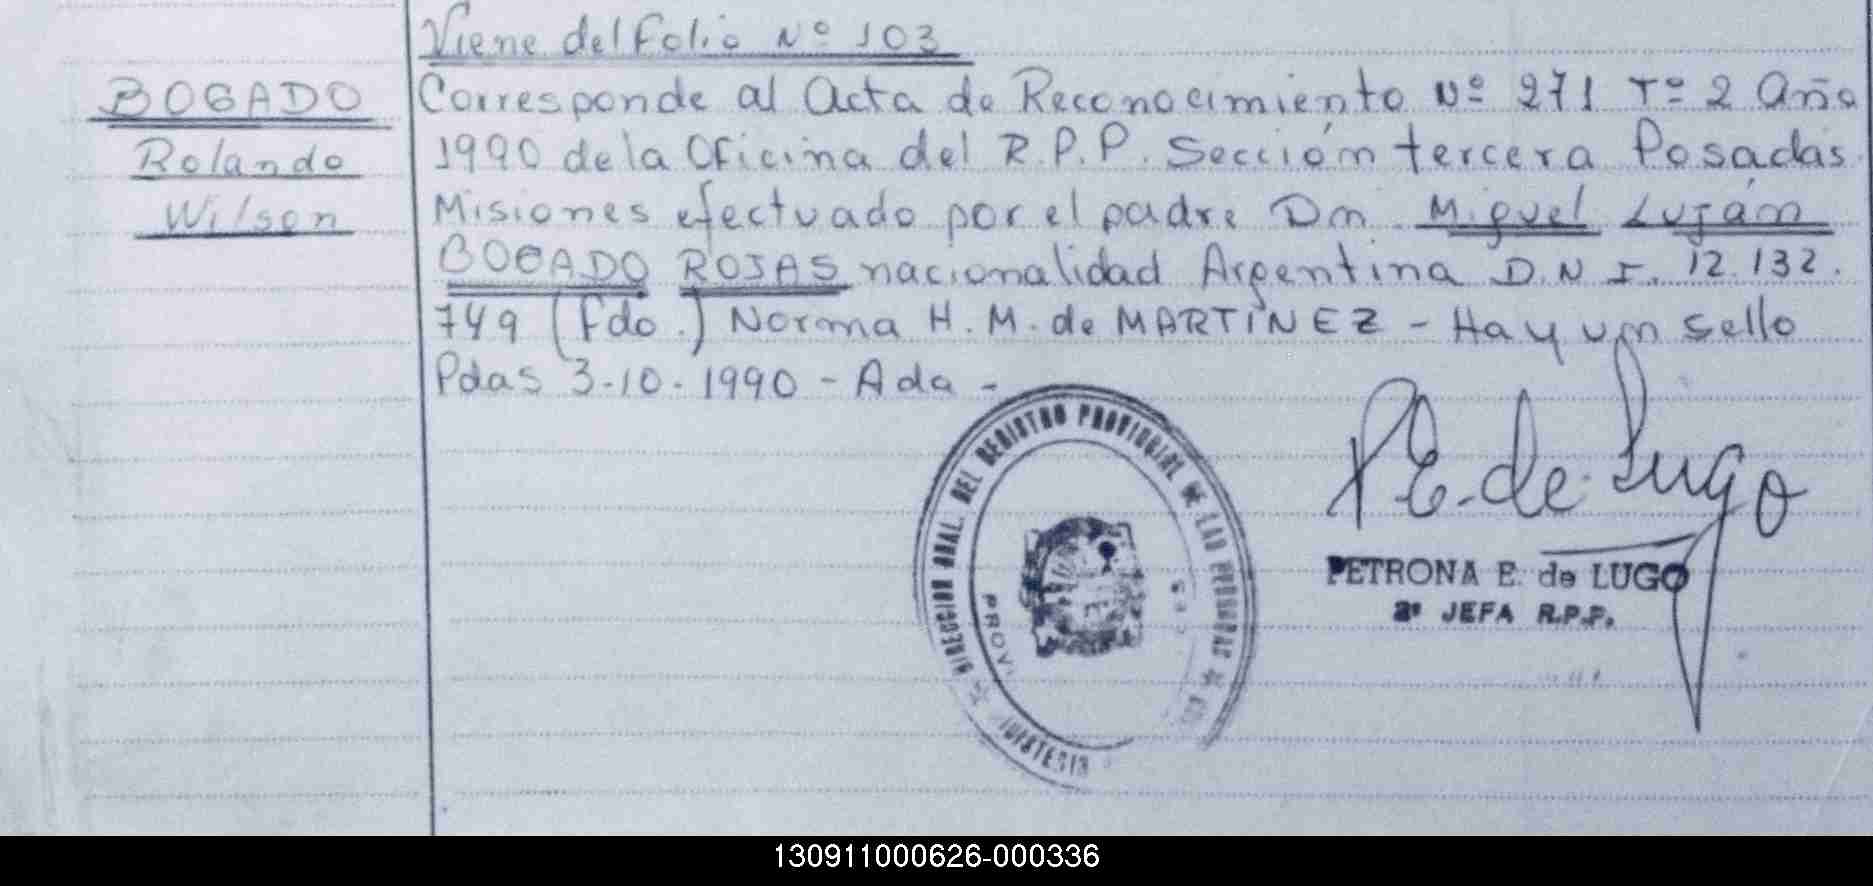 Viene del Folio Nº 103
BOGADO
Rolando
Wilson
Corresponde al Acta de Reconocimiento Nº 271 Tº 2 Año
1990 de la Oficina del R.P.P. Sección tercera Posadas
Misiones efectuado por el padre Dn. Miguel Luján
BOGADO ROJAS nacionalidad Argentina D.N I. 12.132.
749 (Fdo.) Norma H. M. de MARTÍNEZ - Hay un sello
Pdas 3-10-1990 - Ada -
DIRECCION GRAL. DEL REGISTRO PROVINCIAL DE LAS PERSONAS
PE. de Lugo
PETRONA E. de LUGO
2ª JEFA R.P.P.
130911000626-000336